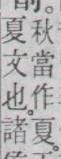 秋當作夏。
夏文也。諸